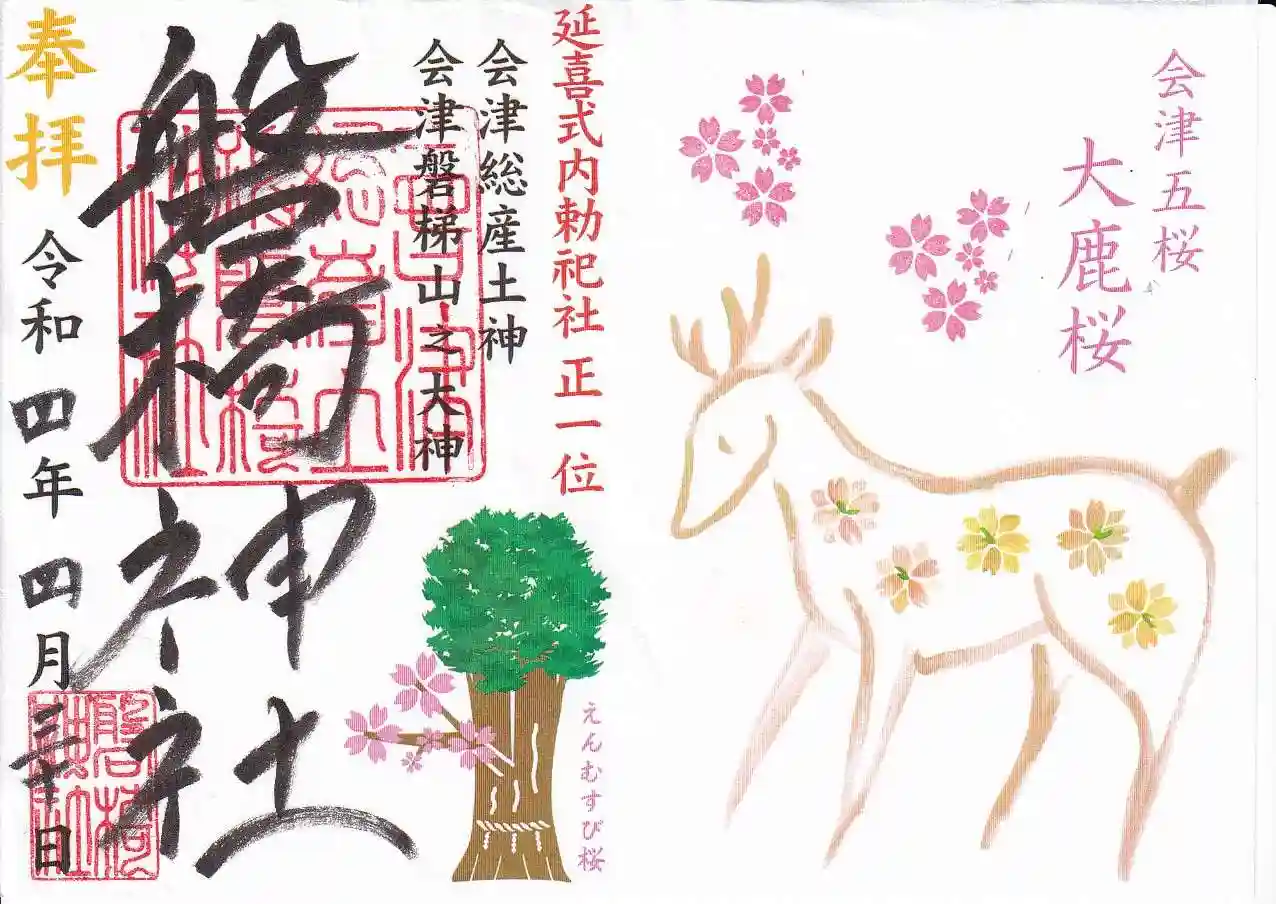 会津五桜
大鹿桜
延喜式内勅祀社 正一位
会津総産土神
会津磐梯山之大神
えんむすび桜
磐椅神社
奉拝
令和 四年 四月三十日